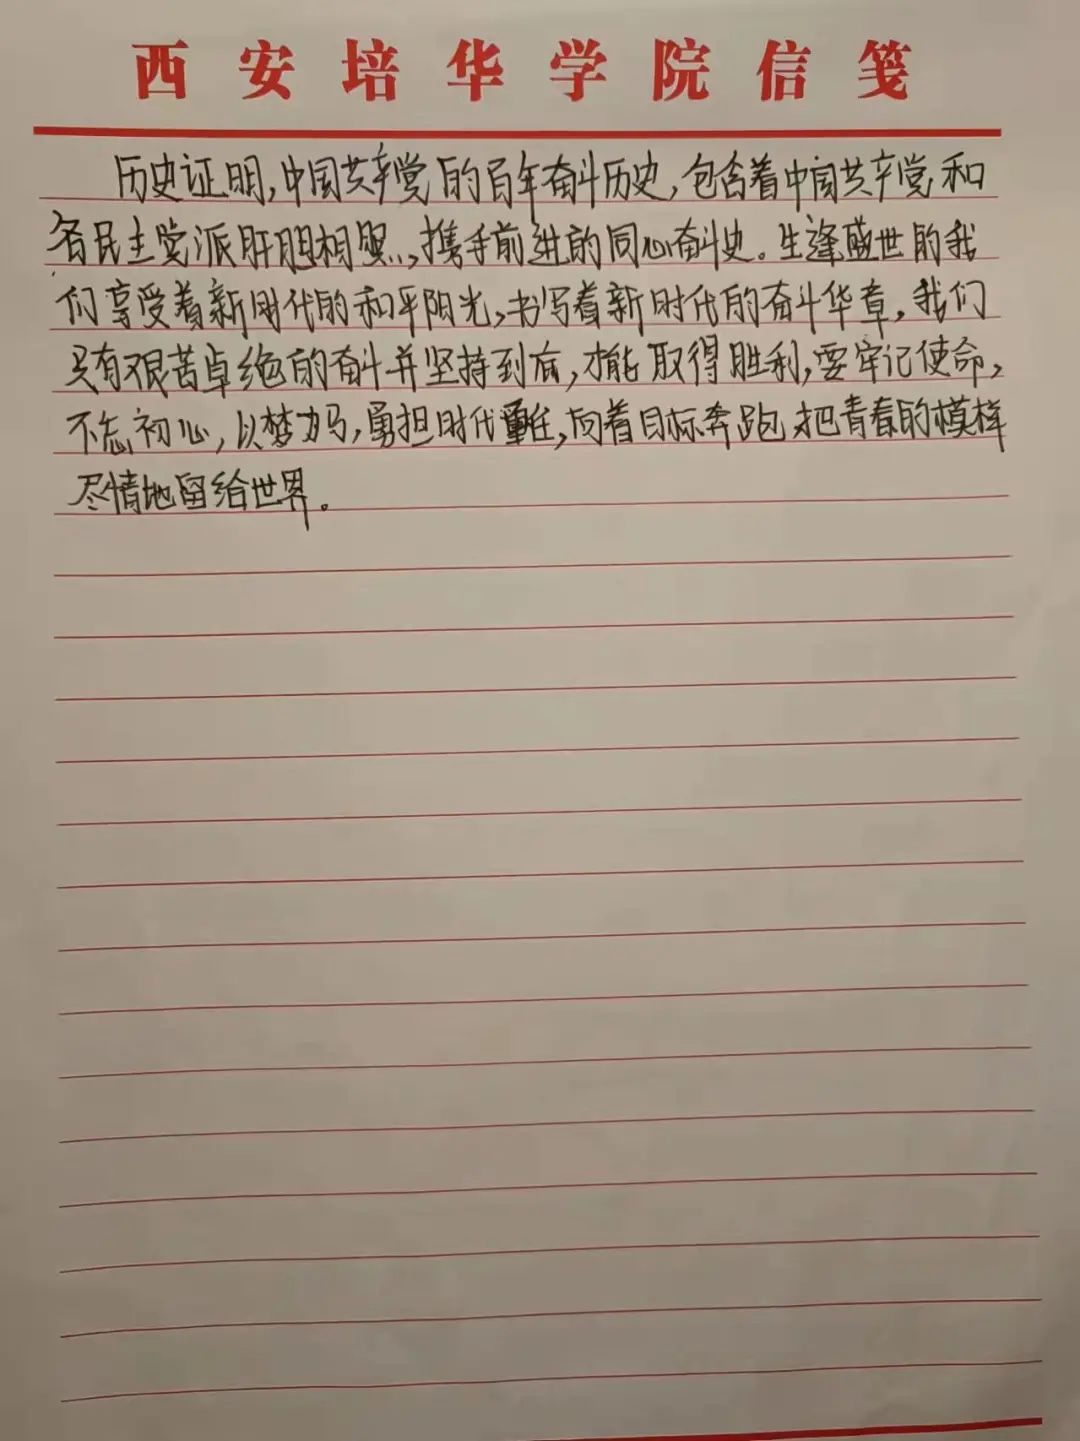 西安培华学院信笺
历史证明,中国共产党的百年奋斗历史,包含着中国共产党和
各民主党派肝胆相照,携手前进的同心奋斗史。生逢盛世的我
们享受着新时代的和平阳光,书写着新时代的奋斗华章,我们
只有艰苦卓绝的奋斗并坚持到底,才能取得胜利,要牢记使命,
不忘初心,以梦为马,勇担时代重任,向着目标奔跑,把青春的模样
尽情地留给世界。